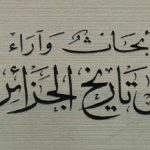 أبحاث وآراء
في تاريخ الجزائر